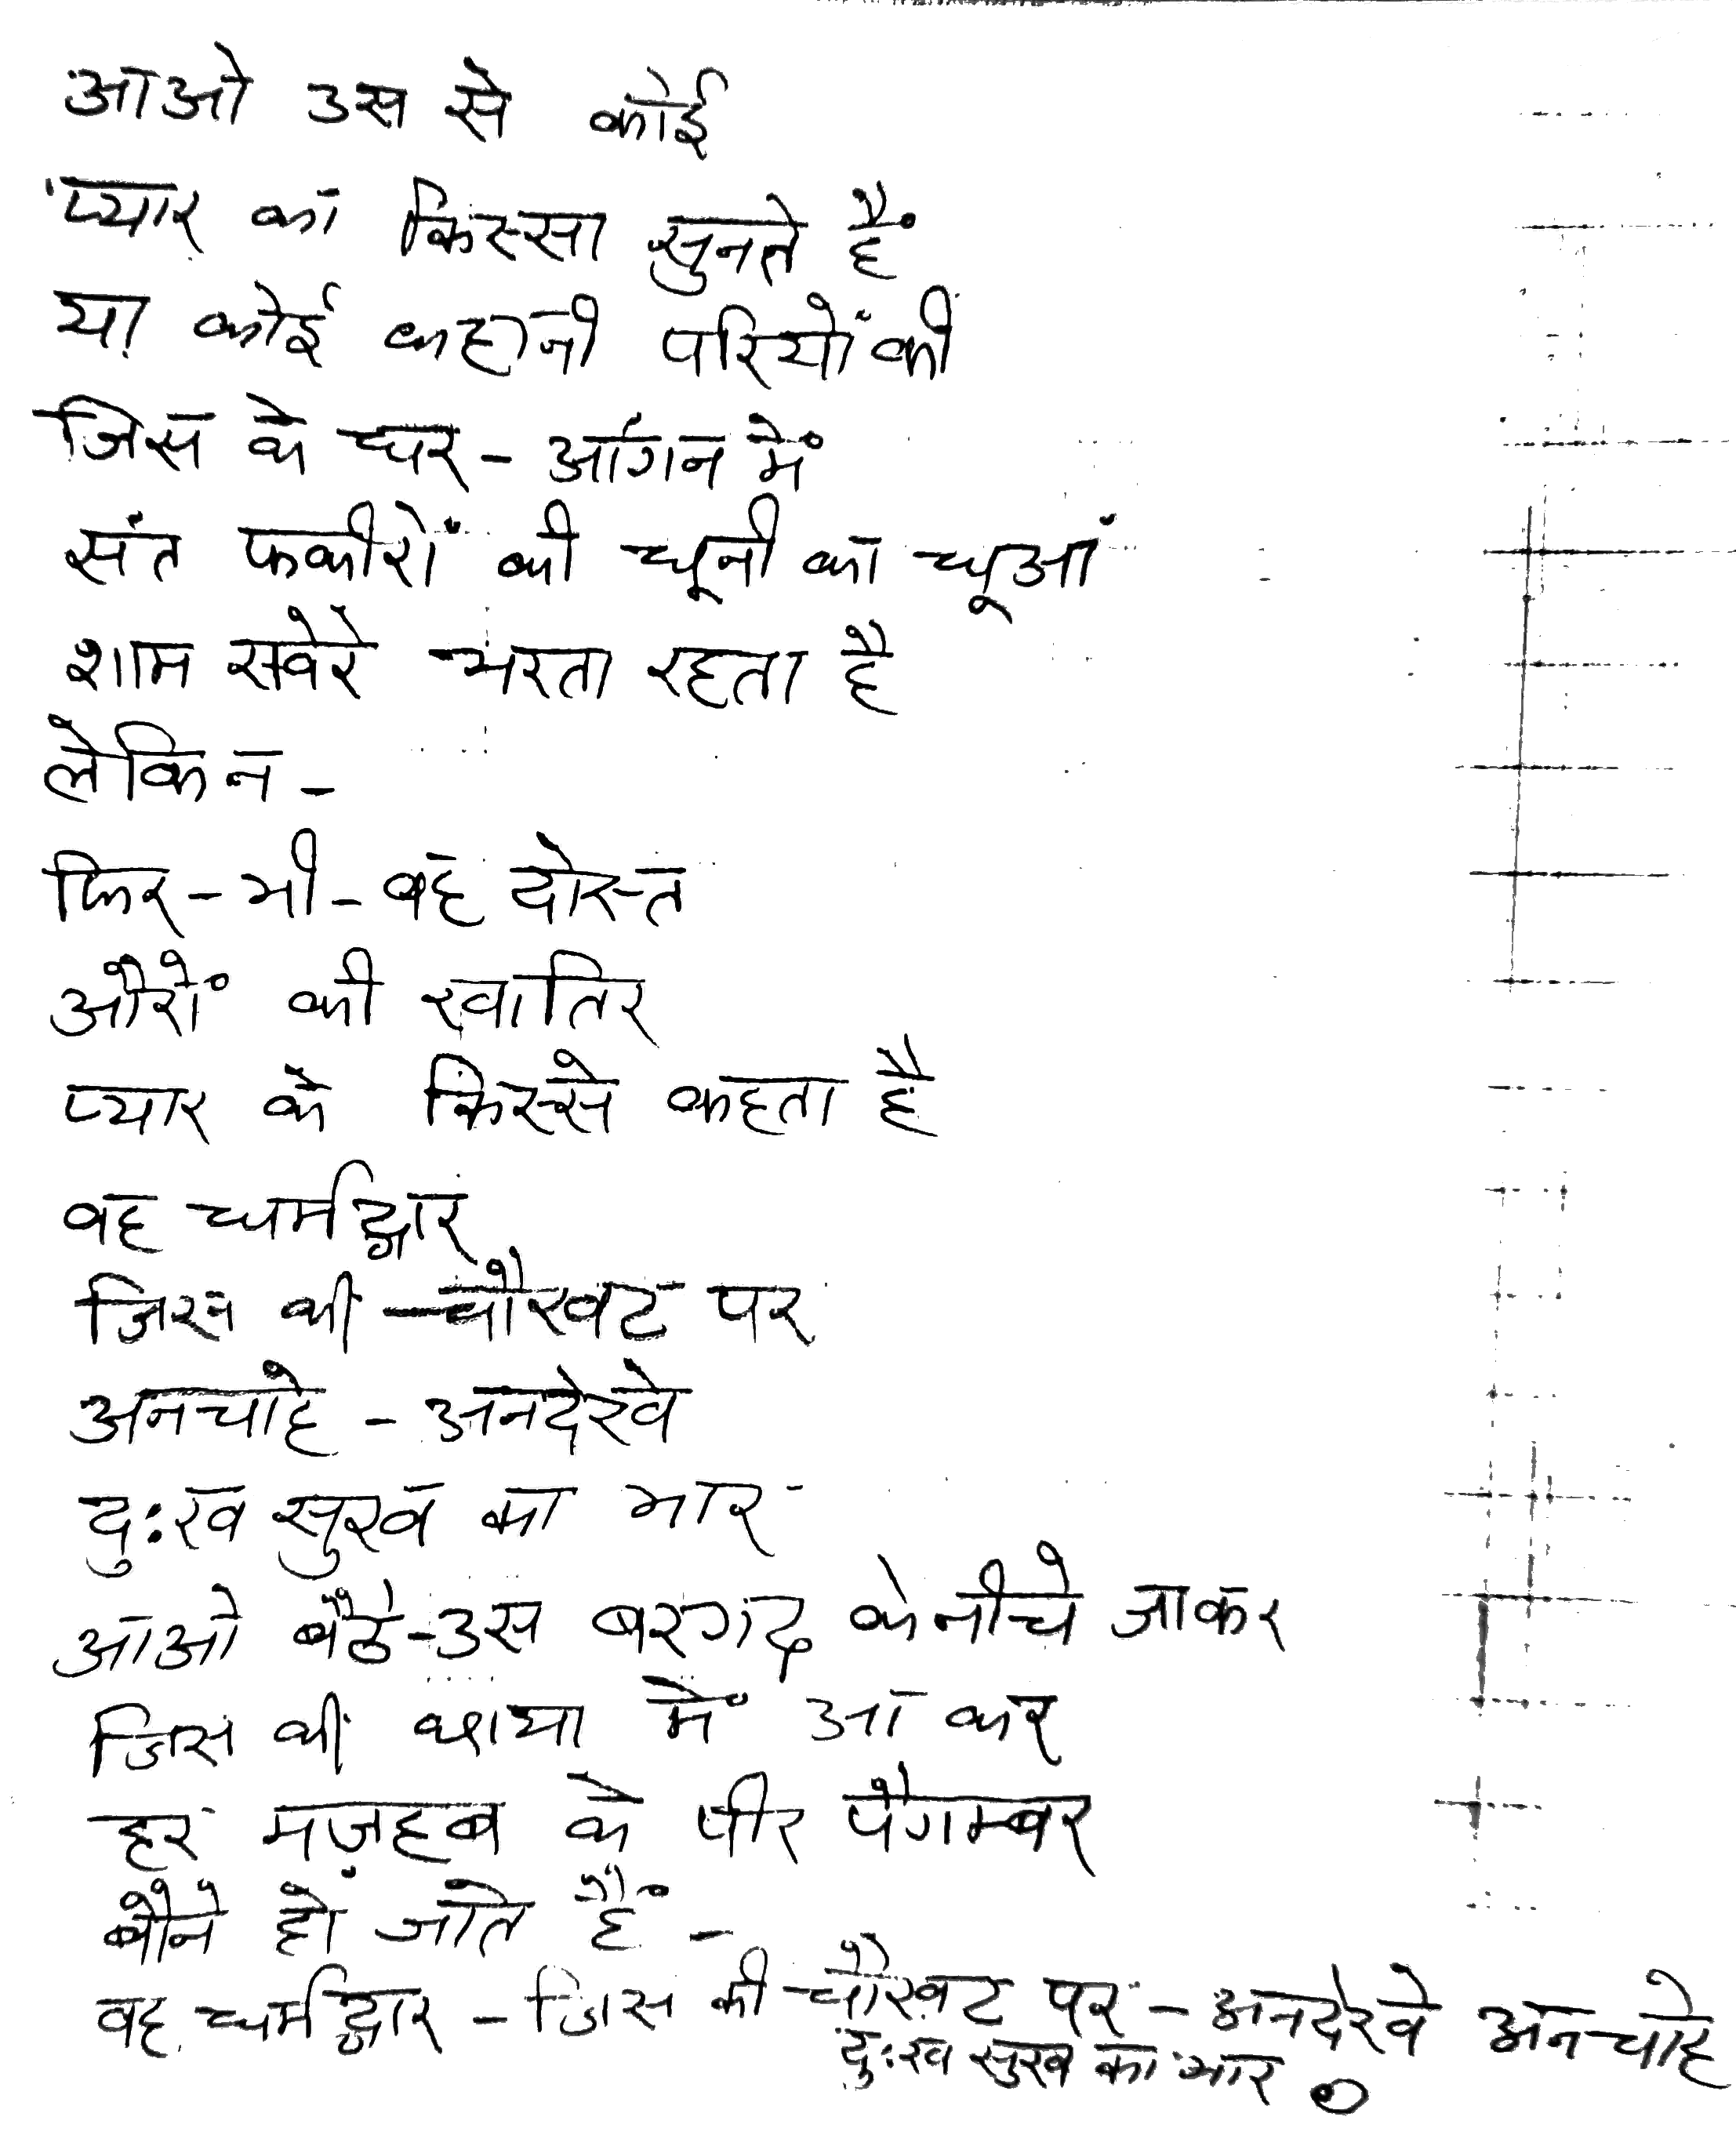 आओ उस से कोई
प्यार का किस्सा सुनते हैं
या कोई कहानी परियों की
जिस के घर - आंगन में
संत फकीरों की धूनी का धूआं
शाम सवेरे भरता रहता है
लेकिन -
फिर - भी - वह दोस्त
औरों की खातिर
प्यार के किस्से कहता है
वह धर्मद्वार
जिस की चौखट पर
अनचाहे - अनदेखे
दु:ख सुख का भार
आओ बैठें - उस बरगद के नीचे जाकर
जिस की छाया में आ कर
हर मज़हब के पीर पैगम्बर
बौने हो जाते हैं -
वह धर्मद्वार - जिस की चौखट पर - अनदेखे अनचाहे
दु:ख सुख का भार